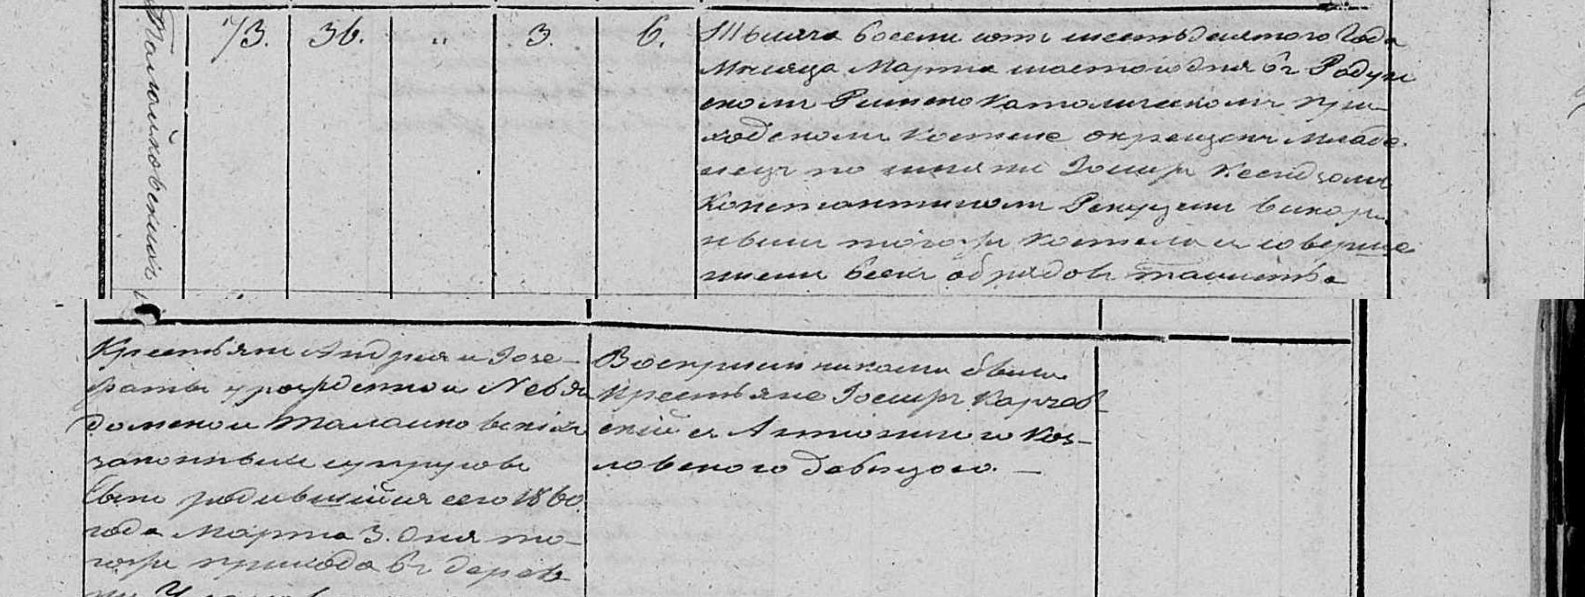 Талойковскихъ
73. 36. " 3. 6.
Тысяча восемь сотъ шестьдесятого Года
Месяца Марта шестого дня въ Радун
скомъ Римско Католическомъ при-
ходскомъ Костеле окрещенъ младе-
нецъ по имяни Іосифъ Ксендзомъ
Константиномъ викар
нымъ тогожъ Костела съ соверше
ніемъ всехъ обрядовъ таинства
Крестьянъ Андрея и Іозе-
фаты урожденной Невя
домской Талойковскихъ
законныхъ супруговъ
сынъ родившійся сего 1860.
года Марта 3. дня то-
гожъ прихода въ дерев
ни
Воспріемниками были
Крестьяне Іосифъ Карчев
скій съ Антониною Коз-
ловского девицою. —